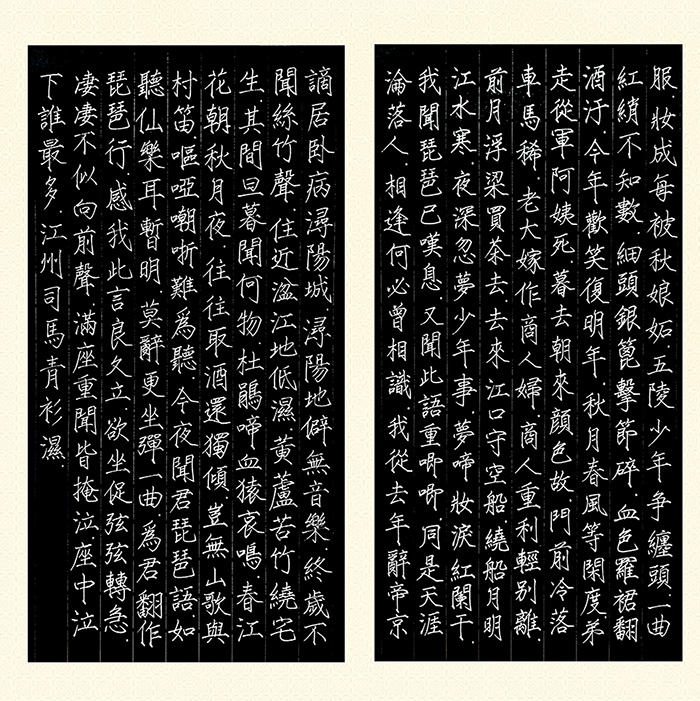 服.妝成每被秋娘妬.五陵少年争纏頭.一曲
紅綃不知數.細頭銀篦擊節碎.血色羅裙翻
酒汙.今年歡笑復明年.秋月春風等閑度.弟
走從軍阿姨死.暮去朝來顏色故.門前冷落
車馬稀.老大嫁作商人婦.商人重利輕别離.
前月浮梁買茶去.去來江口守空船.繞船月明
江水寒.夜深忽夢少年事.夢啼妝淚紅闌干.
我聞琵琶已嘆息.又聞此語重唧唧.同是天涯
淪落人.相逢何必曾相識.我從去年辭帝京
謫居卧病潯陽城.潯陽地僻無音樂.終歲不
聞絲竹聲.住近湓江地低濕.黃蘆苦竹繞宅
生.其間旦暮聞何物.杜鵑啼血猿哀鳴.春江
花朝秋月夜.往往取酒還獨傾.豈無山歌與
村笛.嘔啞嘲哳難爲聽.今夜聞君琵琶語.如
聽仙樂耳暫明.莫辭更坐彈一曲.爲君翻作
琵琶行.感我此言良久立.欲坐促弦弦轉急.
凄凄不似向前聲.滿座重聞皆掩泣.座中泣
下誰最多.江州司馬青衫濕.